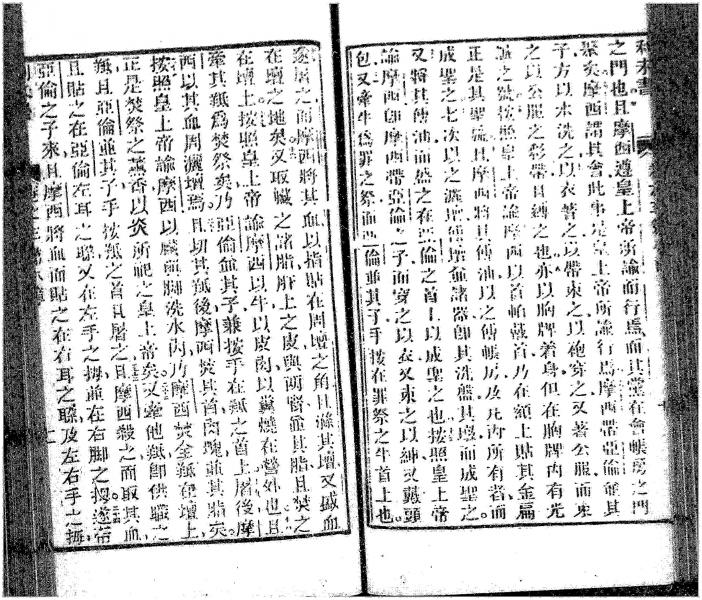 利未書
之門也且摩西遵皇上帝所諭而行焉而其黨在會帳房之門
聚矣摩西謂其會此事是皇上帝所諭行焉摩西帶亞倫並其
子方以水洗之以衣著之以帶束之以袍穿之又著公服而束
之以公服之彩帶且縛之也亦以胸牌着身但在胸牌內有光
之號按照皇上帝諭摩西以首帕戴首乃在額上貼其金扁
正是其聖號且摩西將其傅油以之傅帳房及凡內所有者而
成聖之七次以之灑壇傅壇並諸器卽其洗盤其壇而成聖之
又將其傅油而然之在亞倫之首上以成聖之也按照皇上帝
諭摩西卽摩西帶亞倫之子而穿之以衣又束之以紳又戴頭
包又牽牛爲罪之祭而亞倫並其子手按在罪祭之牛首上也
遂屠之而摩西將其血以指貼在周壇之角且滌其壇又盛血
在壇之地矣又取臟之諸脂肝上之皮與兩腎並其脂且焚之
在壇上按照皇上帝諭摩西以牛以皮肉以糞燒在營外也且
牽其羝爲焚祭矣乃亞倫並其子輩按手在羝之首上屠後摩
西以其血周灑壇焉且切其羝後摩西焚其首肉塊並其脂矣
按照皇上帝諭摩西以臟並腳洗水內乃摩西焚全羝在壇上
正是焚祭之薰香以炎所祀之皇上帝矣又牽他羝卽供職之
羝且亞倫並其子手按羝之首且屠之且摩西殺之而取其血
且貼之在亞倫左耳之聯又在左手之拇並在右脚之拇遂帶
亞倫之子來且摩西將血而貼之在右耳之聯及左右手之拇